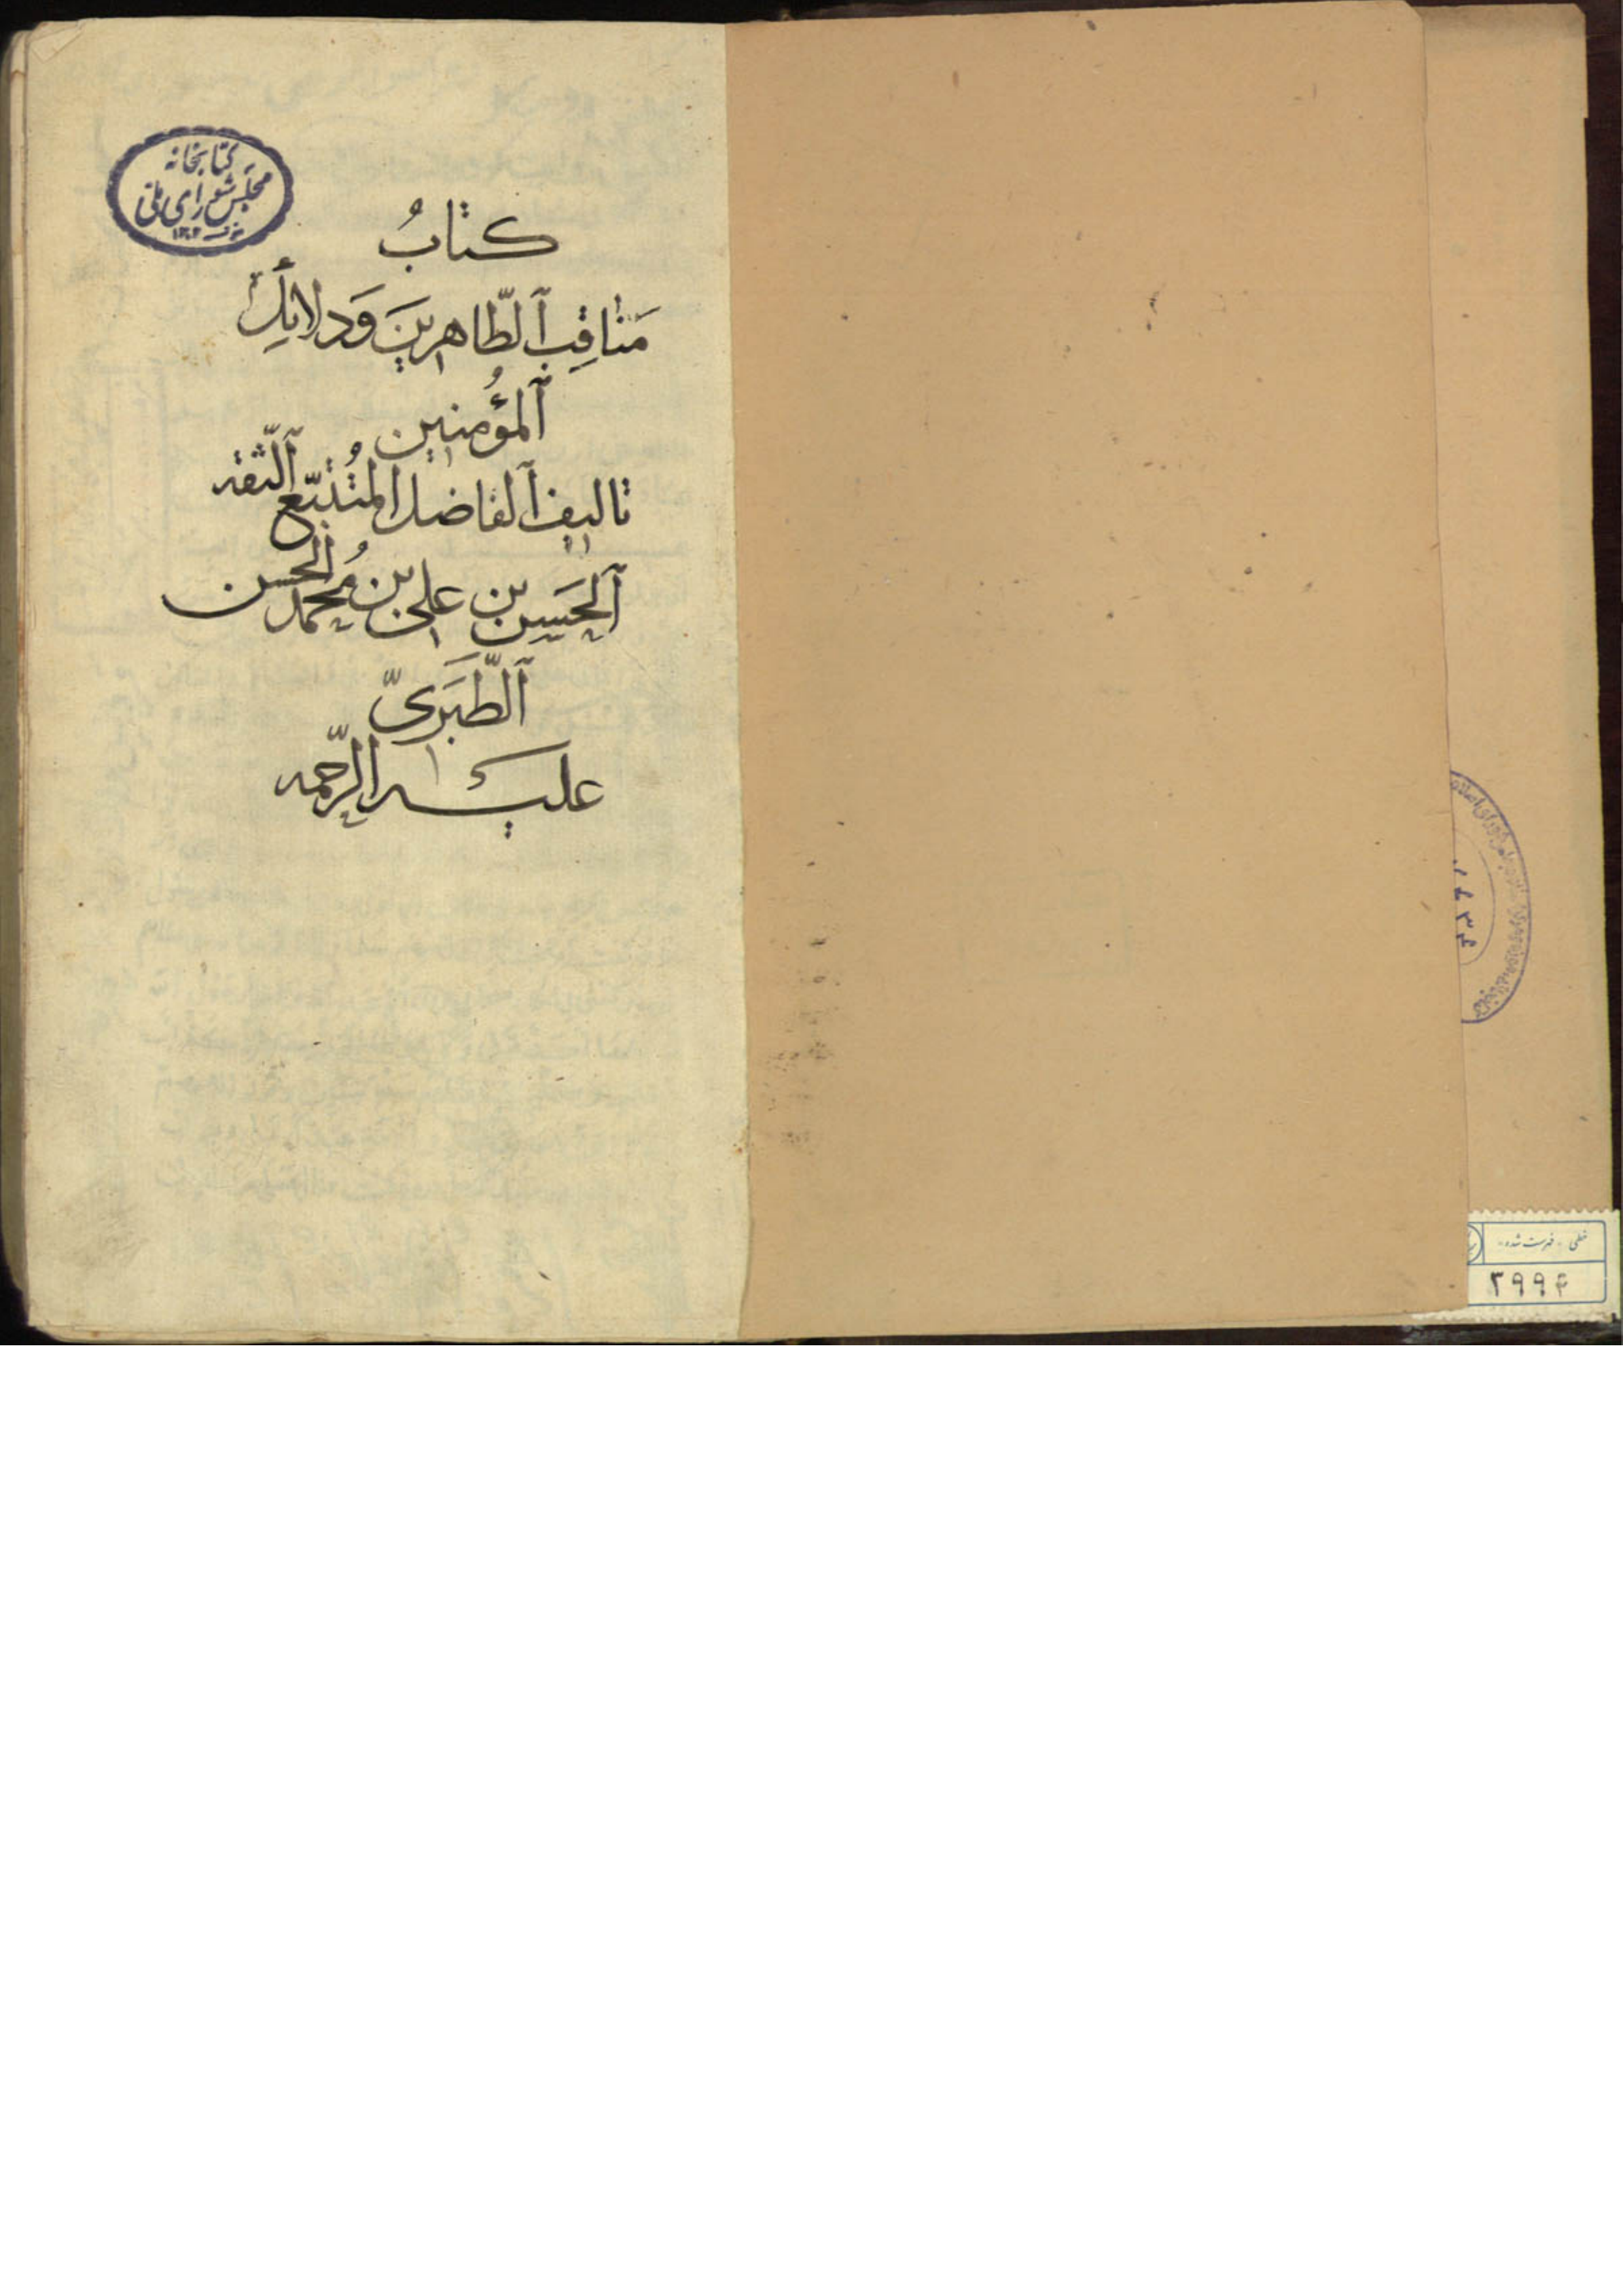 کتابخانه
مجلس شورای ملی
۱۳۰۲
کتابُ
مَناقِبِ الطّاهرینَ وَدلائِلِ
المؤُمنین
تالیف الفاضل المُتتبّع الثّقه
الحَسین بن علی بن مُحمد الحسن
الطّبَریّ
علیه الرّحمه
خطی - فهرست شده -
۳۹۹۴